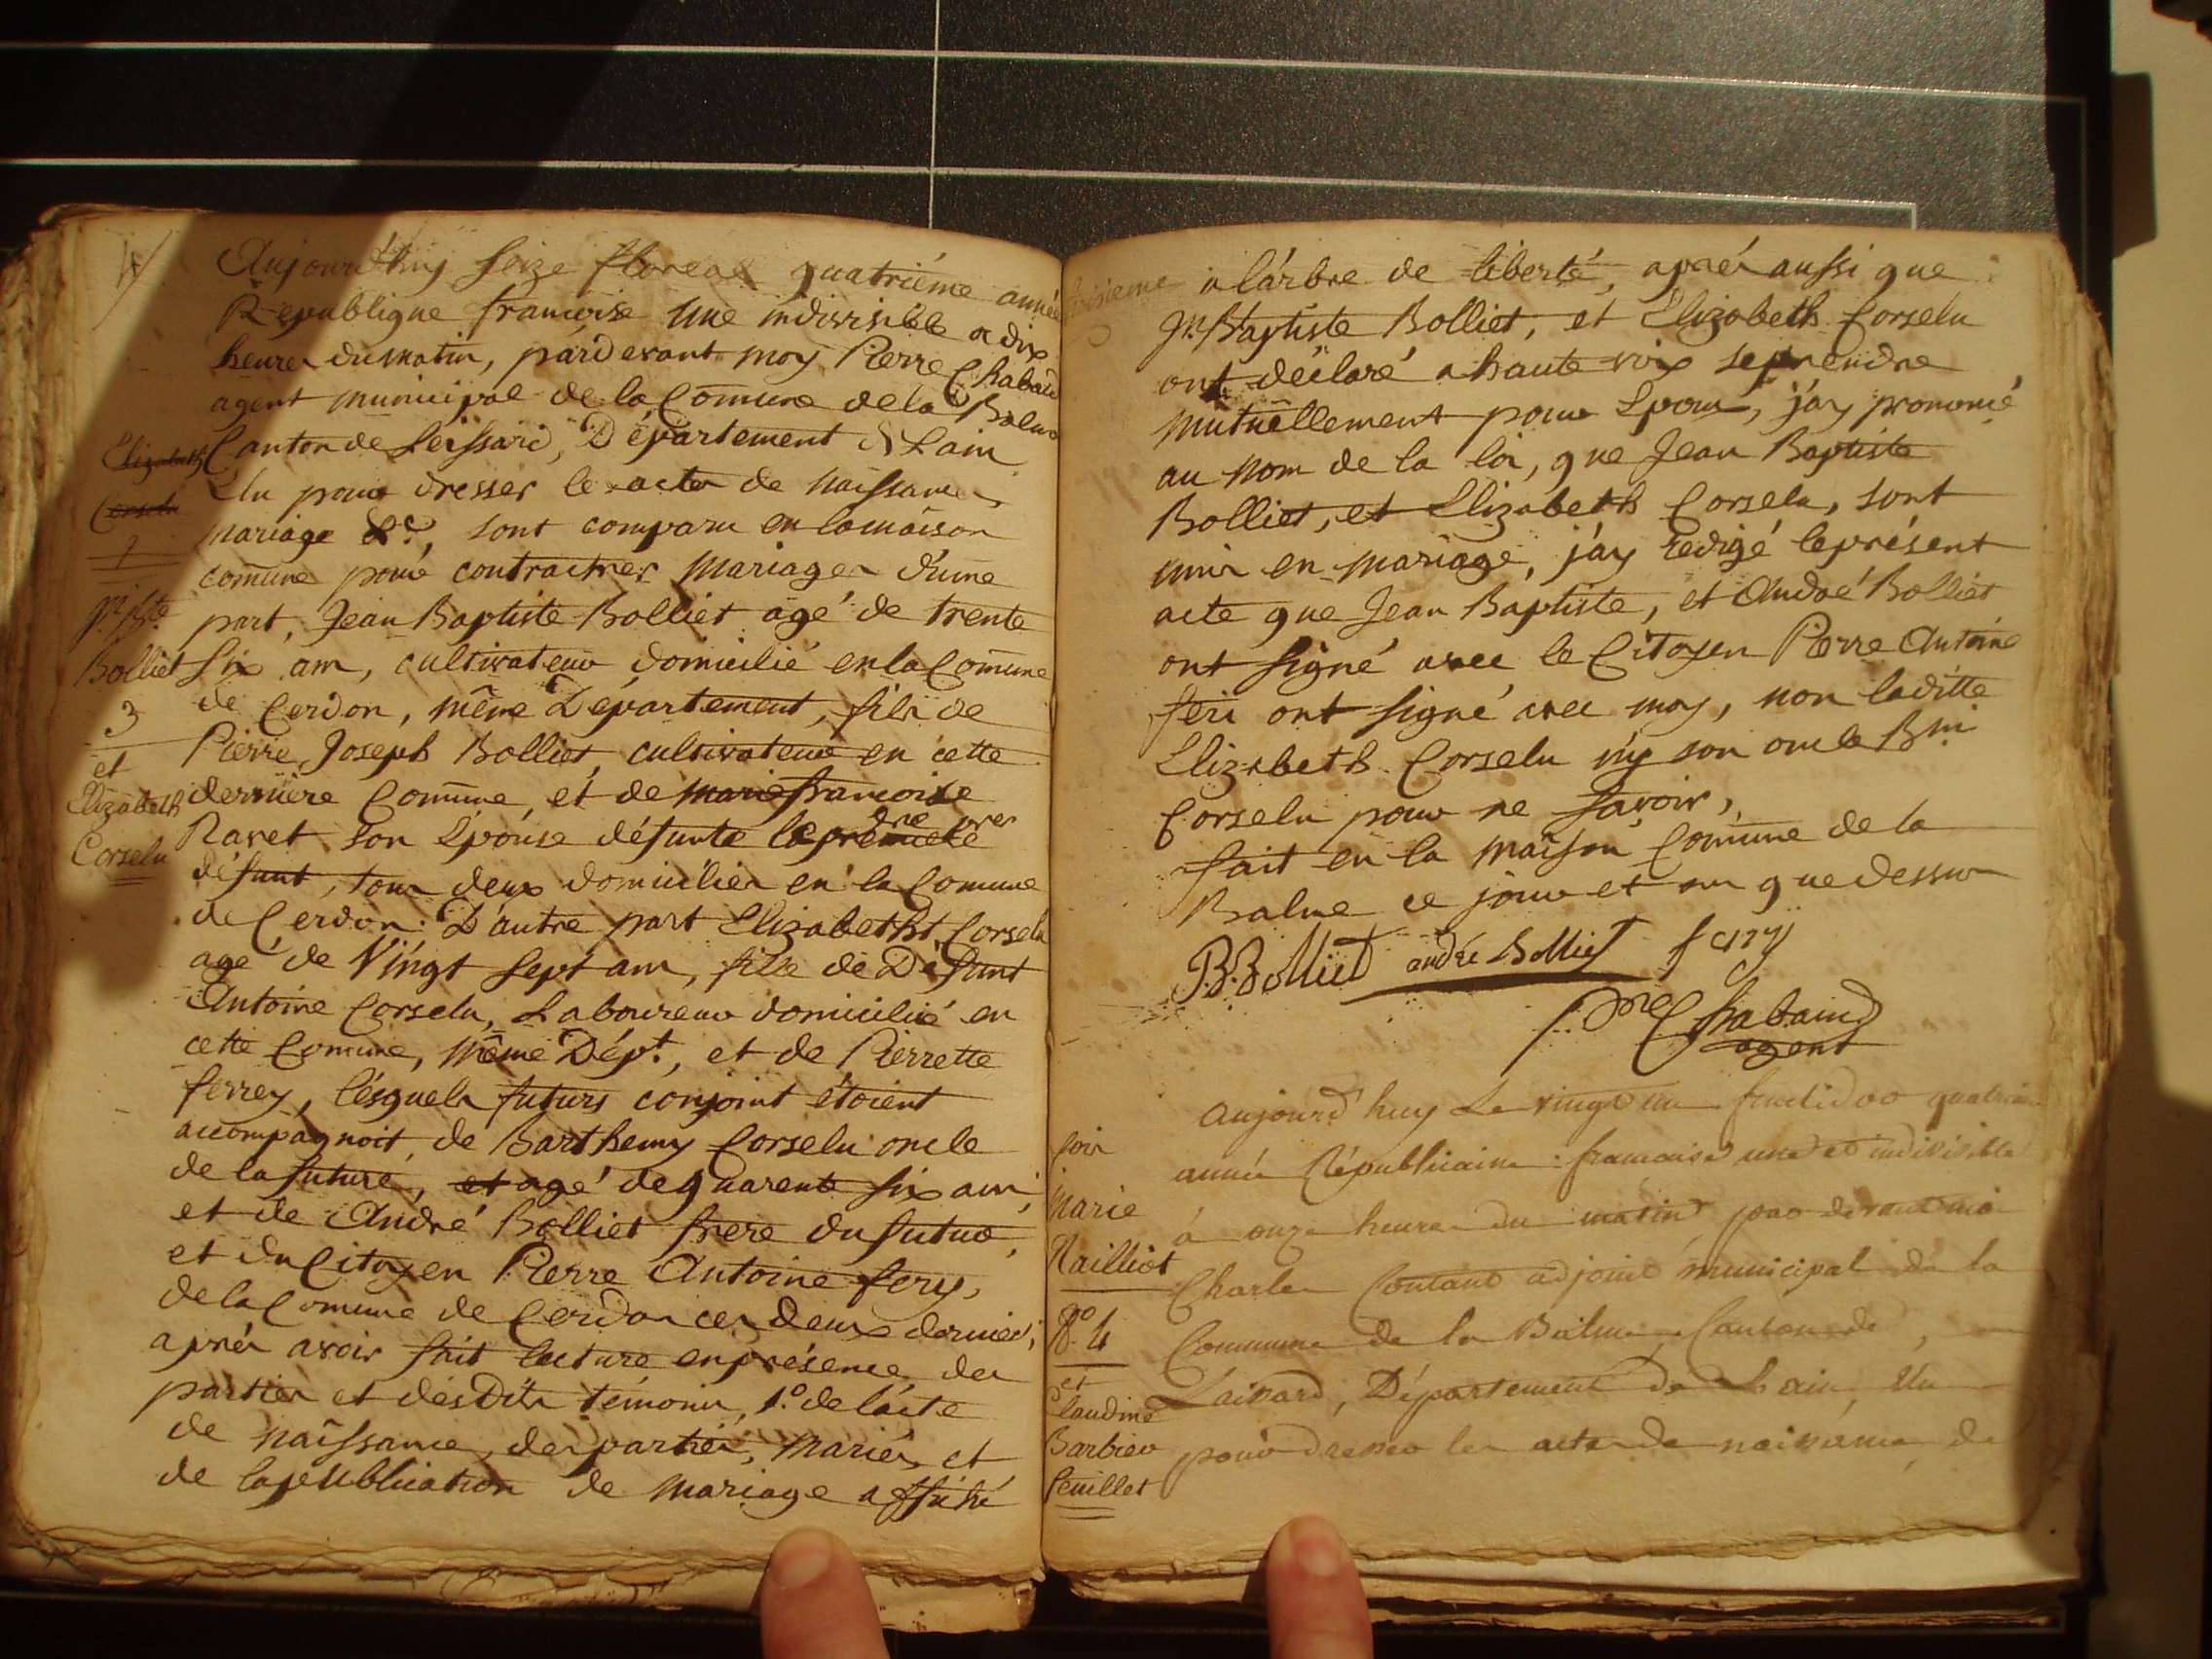 Aujourd'huy seize floreal quatriéme année
Republique francoise une indivisible a dix
heures du matin, pardevant moy Pierre Chabaud
agent municipal de la Comune de la Balme
Canton de Leissard, Département de Lain
Elu pour dresser le acte de naissance,
mariage &c, sont comparu en la maison
comune pour contracter mariage d'une
part, Jean Baptiste Bolliet agé de trente
six an, cultivateur domicilié en la Comune
de Cerdon, même Département, fils de
Pierre Joseph Bolliet, cultivateur en cette
derniere Comune, et de marie francoise
Ravet son Epouse défunte
défunt, tous deux domicilier en la Comune
de Cerdon. D'autre part Elizabetht Corselu
agé de Vingt sept an, fille de Défunt
Antoine Corselu, Laboureur domicilié en
cette Comune, même Dépt, et de Pierrette
ferrey, lésquels futurs conjoint étoient
accompagnoit de Barthemy Corselu oncle
de la future, et agé de quarente six ans,
et de André Bolliet frere du futur,
et du Citoyen Pierre Antoine fery,
de la Comune de Cerdon ces deux dernier,
aprés avoir fait lecture en présence des
parties et desdits témoins, 1.º de lácte
de naissance des partiés, mariés et
de la publication de mariage affiché
Elizabeth
Corselu
Jn Bte
Bolliet
3
et
Elizabeth
Corselu
a lárbre de liberté, aprés aussi que
Jn Baptiste Bolliet, et Elizabeth Corselu
ont déclaré a haute voix se prendre
mutuellement pour Epoux, j'ay prononcé
au nom de la loi, que Jean Baptiste
Bolliet, et Elizabeth Corselu, sont
unis en mariage, j'ay redigé le présent
acte que Jean Baptiste, et André Bolliet
ont signé avec le Citoyen Pierre Antoine
feri ont signé avec moy, non laditte
Elizabeth Corselu ny son oncle Bmi
Corselu pour ne savoir,
fait en la maison Comune de la
Balme ce jour et an que dessus
B. Bolliet andré Bolliet fery
pre Chabaud
agent
Aujourd'huy Le vingt un fructidor quatrieme
année Républicaine francaise une et indivisible
à onze heures du matin par devant moi
Charles Coutant adjoint municipal de la
Commune de la Balme, Canton de
Laissard, Département de Lain, Elu
pour dresser les actes de naissance, de
Marie
Railliot
N.º 4
et
Claudine
Barbier
feuillet